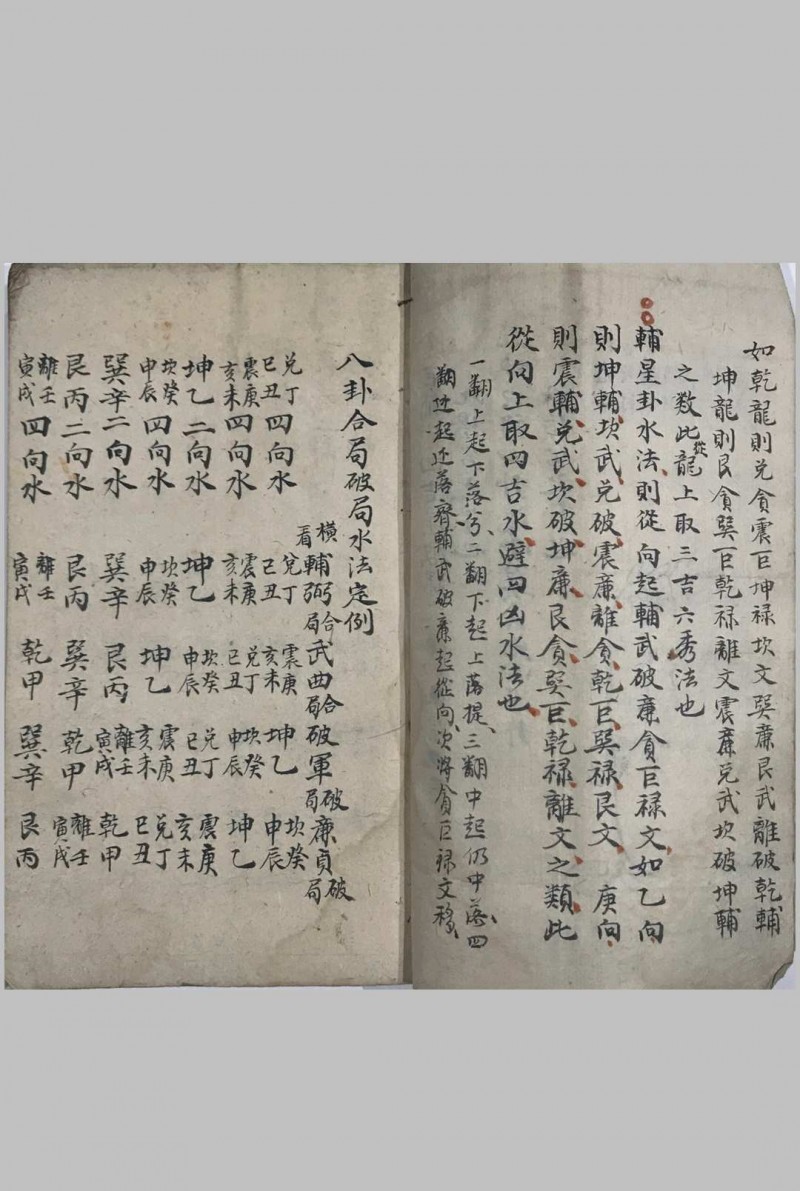 如乾龍則兌貪震巨坤禄坎文巽廉艮武離破乾輔
坤龍則艮貪巽巨乾禄離文震廉兌武坎破坤輔
之数此從龍上取三吉六秀法也
輔星卦水法則從向起輔武破廉貪巨禄文如乙向
則坤輔坎武兌破震廉離貪乾巨巽禄艮文 庚向
則震輔兌武坎破坤廉艮貪巽巨乾禄離文之類此
從向上取四吉水避四凶水法也
一翻上起下落兮二翻下起上落提三翻中起仍中落四
翻边起边落齊輔武破廉起從向次將貪巨禄文移
八卦合局破局水法定例
橫看 輔弼合局 武曲合局 破軍破局 廉貞破局
兌丁巳丑四向水 兌丁巳丑 震庚亥未 坤乙 坎癸申辰
震庚亥未四向水 震庚亥未 兌丁巳丑 坎癸申辰 坤乙
坤乙二向水 坤乙 坎癸申辰 兌丁巳丑 震庚亥未
坎癸申辰四向水 坎癸申辰 坤乙 震庚亥未 兌丁巳丑
巽辛二向水 巽辛 艮丙 離壬寅戌 乾甲
艮丙二向水 艮丙 巽辛 乾甲 離壬寅戌
離壬寅戌四向水 離壬寅戌 乾甲 巽辛 艮丙